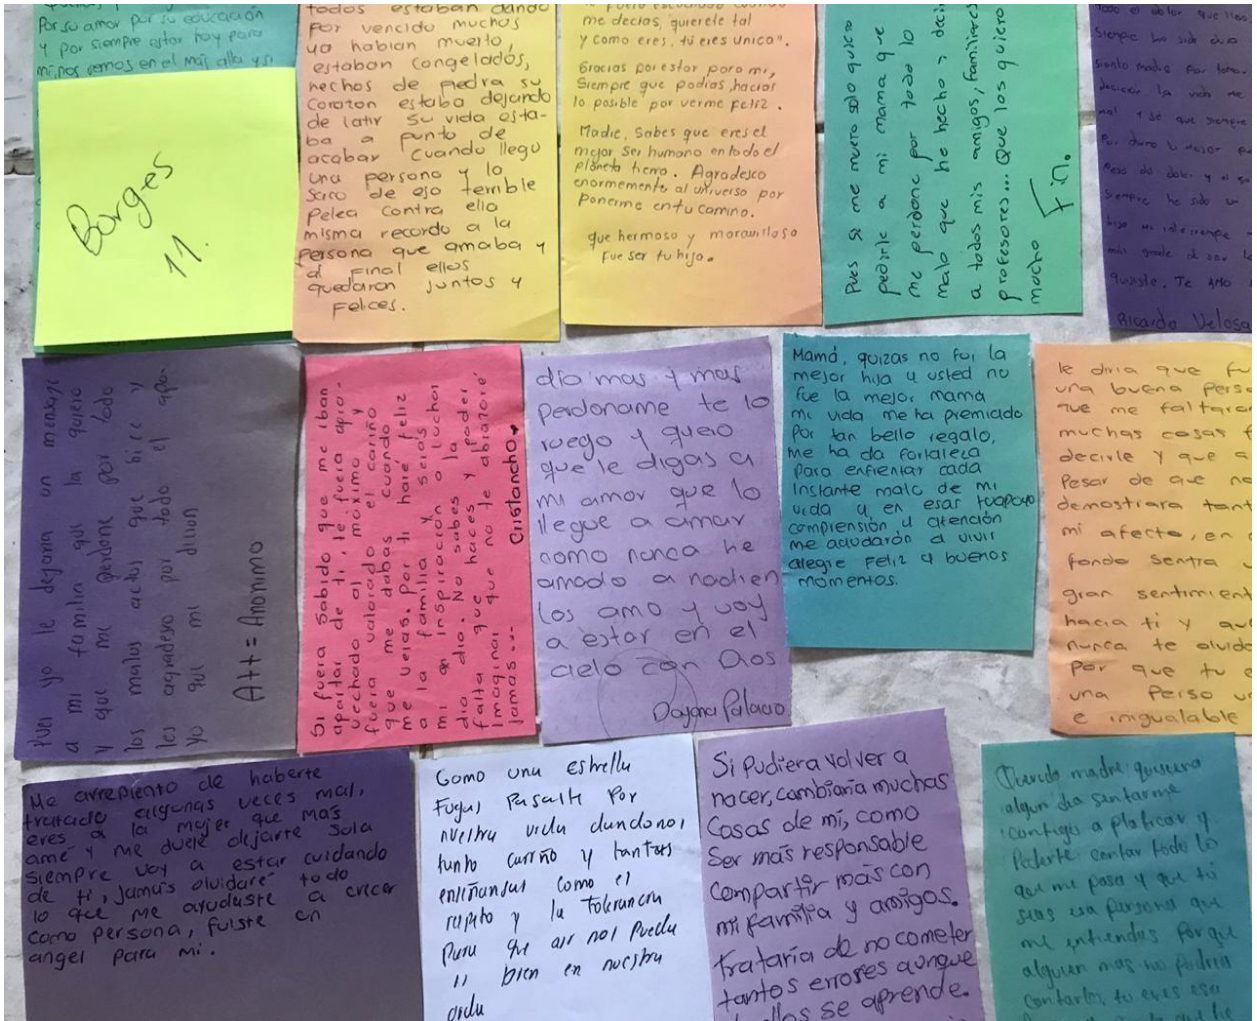 Por su amor por su educación
y por siempre estar hay para
mi, nos vemos en el mas alla y si
Borges
11.
todos estaban dando
por vencido muchos
ya habian muerto,
estaban congelados,
hechos de piedra su
corazon estaba dejando
de latir su vida esta-
ba a punto de
acabar cuando llego
una persona y lo
saco de esa terrible
pelea contra ella
misma recordo a la
persona que amaba y
al final ellos
quedaron juntos y
Felices.
me decias, quierete tal
y como eres, tú eres unico".
Gracias por estar para mi,
Siempre que podias, hacias
lo posible por verme Feliz.
Madre, Sabes que eres el
mejor Ser humano en todo el
planeta tierra. Agradesco
enormemente al universo por
ponerme en tu camino.
que hermoso y maravilloso
Fue ser tu hijo.
Pues si me muero solo quiero
pedirle a mi mama que
me perdone por todo lo
malo que he hecho y decir
a todos mis amigos, familieres
profesores... Que los quiero
mucho Fin.
siempre ha sido
siento madre por tomar
decicion la vida me
mal y se que siempre
fui duro
Pero
siempre he sido un
quisiste. Te AMO
Ricardo Velosa
Pues yo le dejaria un mensaje
a mi familia que la quiero
y que me perdone por todo
los malos actos que hice y
les agradesco por todo el apo-
yo que mi dieron
Att = Anonimo
Si fuera Sabido que me iban
apartar de ti, le fuera apro-
vechado al maximo y
fuera valorado el cariño
que me dabas cuando
me veias. Por ti haré feliz
a la familia y serás
mi inspiración a luchar
dia a dia. No sabes la
falta que haces y poder
imaginar que no te abrazaré
jamas... Cristancho
dia mas y mas
perdoname te lo
ruego y quero
que le digas a
mi amor que lo
llegue a amar
como nunca he
amado a nadien
los amo y voy
a estar en el
cielo con Dios
Dayana Palacio
Mamá, quizas no fui la
mejor hija y usted no
fue la mejor mamá
mi vida me ha premiado
Por tan bello regalo,
me ha da fortaleza
Para enfrentar cada
Instante malo de mi
vida y en esas tu apoyo
comprensión y atención
me ayudarón a vivir
alegre Feliz y buenos
momentos.
le diria que fu
una buena perso
que me faltaron
muchas cosas
decirle y que a
Pesar de que no
demostrara tant
mi afecto, en
fondo sentia
gran sentimient
hacia ti y que
nunca te olvide
Por que tu e
una Perso un
e inigualable
Me arrepiento de haberte
tratado algunas veces mal,
eres a la mujer que más
amé y me duele dejarte Sola
Siempre voy a estar cuidando
de ti, jamás olvidaré todo
lo que me ayudaste a crecer
como persona, fuiste un
angel para mi.
Como una estrella
Fugas Pasaste Por
nuestra vida dandonos
tanto cariño y tantas
enseñansas como el
respeto y la tolerancia
Para que asi nos Pueda
ir bien en nuestra
vida
Si pudiera volver a
nacer, cambiaria muchas
cosas de mi, como
Ser más responsable
Compartir más con
mi familia y amigos.
trataria de no cometer
tantos errores aunque
de ellos se aprende.
Querida madre quisiera
algun dia sentarme
contigo a platicar y
Poderte contar todo lo
que me pasa y que tú
seas esa persona que
me entiendas Porque
alguien mas no podria
contarlo, tu eres esa